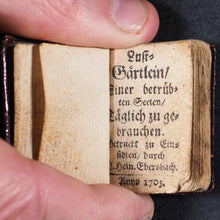 Lust-
Gärtlein/
Einer betrüb-
ten Seelen/
Täglich zu ge-
brauchen.
Gedruckt zu Ein-
siedlen, durch
J. Hein. Ebersbach.
Anno 1705.